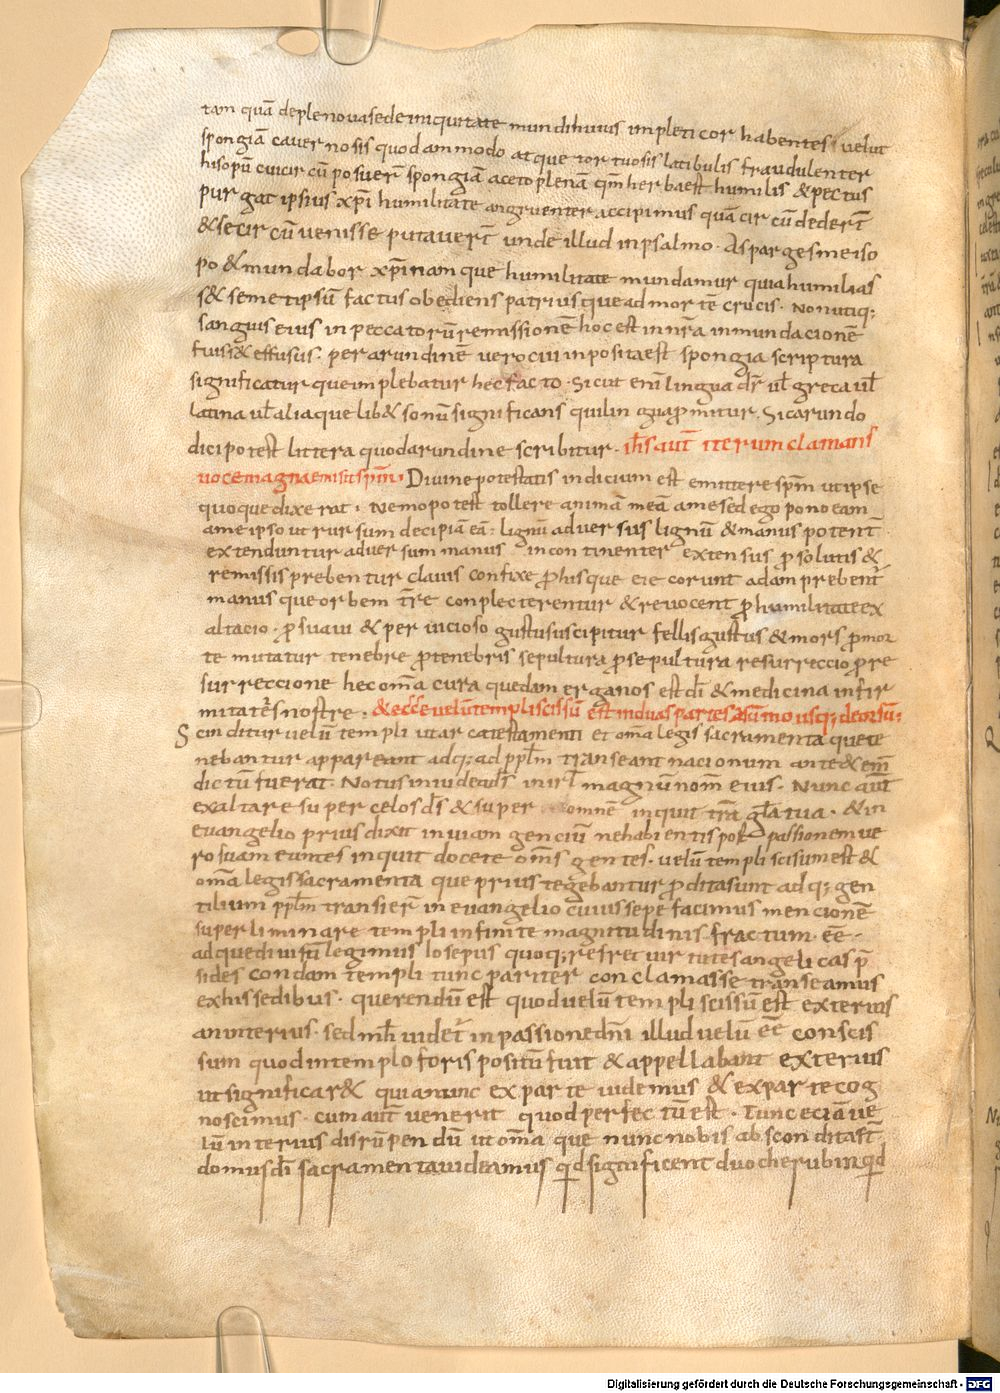 tam quā de plenouasede iniquitate mundi huius impleti cor habentes velut
spongiā cavernosis quodammodo atque tortuosis latibulis fraudulenter
hisopū cui circū posuer̄ spongiā aceto plenā qm̄ herba est humilis & pectus
purgat ipsius xp̄i humilitate angruenter accipimus quā circū dedert̄
& se circū venisse putavert̄ unde illud in psalmo. Asparges me iso
po & mundabor xp̄i nam que humilitate mundamur quia humilias
s& semetipsū factus obediens patri usque ad mortē crucis. Non utiq;
sanguis eius in peccatorū remissionē hoc est in nr̄a inmundacionē
fuis& effusus. per arundinē vero cui inposita est spongia scriptura
significatur que implebatur hec facto. Sicut enī lingua dr̄ ul̄ greca ul̄
latina ul̄ alia que lib& sonū significans qui lingua promitur. Sic arundo
dici potest littera quod arundine scribitur. ih̄s aut̄ iterum clamans
uoce magna emisit spm̄. Divine potestatis indicium est emittere spm̄ ut ipse
quoque dixerat. Nemo potest tollere animā meā a me sed ego pono eam
a me ipso ut rursum decipiā eā. lignū adversus lignū & manus potent̄
extenduntur adversum manus incontinenter extensus p solutis &
remissis prebentur clavis confixe p hisque eiecorunt adam prebent̄
manus que orbem tr̄re conplecterentur & revocent p humilitate ex
altacio. p suavi & pernicioso gustu suscipitur fellis gustus & mors p mor
te mutatur tenebre p tenebris sepultura p sepultura resurreccio p re
surreccione hec om̄a cura quedam erga nos est dī & medicina infir
mitatēs nostre. & ecce velū templi scissū est in duas partes a sūmo usq; deorsū;
Scinditur velū templi ut arca testamenti et om̄a legis sacramenta que te
nebantur appareant adq; ad ppl̄m transeant nacionum ante & enī
dictū fuerat. Notus in iudea ds̄ in isrl̄ magnū nom̄ eius. Nunc aut̄
exaltare super celos ds̄ & super omnē inquit tr̄a gl̄a tua. & in
evangelio prius dixit in viam genciū ne habientis post passionem ve
ro suam euntes inquit docete om̄s gentes. velū templi scisum est &
om̄a legis sacramenta que prius tegebantur p dita sunt adq; gen
tilium ppl̄m transier̄ in evangelio cuius sepe facimus mencionē
superliminare templi infinite magnitudinis fractum. ēē.
adque divisū legimus Iosepus quoq; refret virtutes angelicas p̄
sides condam templi tunc pariter conclamasse transeamus
ex his sedibus. querendū est quod velū templi scissū est exterius
an interius. sed mh̄ videt̄ in passione dn̄i illud velū ēē conscis
sum quod in templo foris positū fuit & appellabant exterius
ut significar& quia nunc ex parte videmus & ex parte cog
noscimus. cum aut̄ venerit quod perfectū est. Tunc eciā ve
lū interius disrūpendū ut om̄a que nunc nobis abscondita st̄
domus dī sacramenta videamus qd significent duo cherubin qd